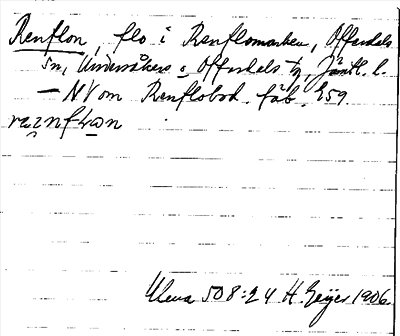 Renflon, flo i Renflomarken, Offerdals
sn, Undersåkers o Offerdals tg, Jämtl. l.
— NV om Renflobod. fäb. 859.
Uleva 508:24 H. Geijer 1906.